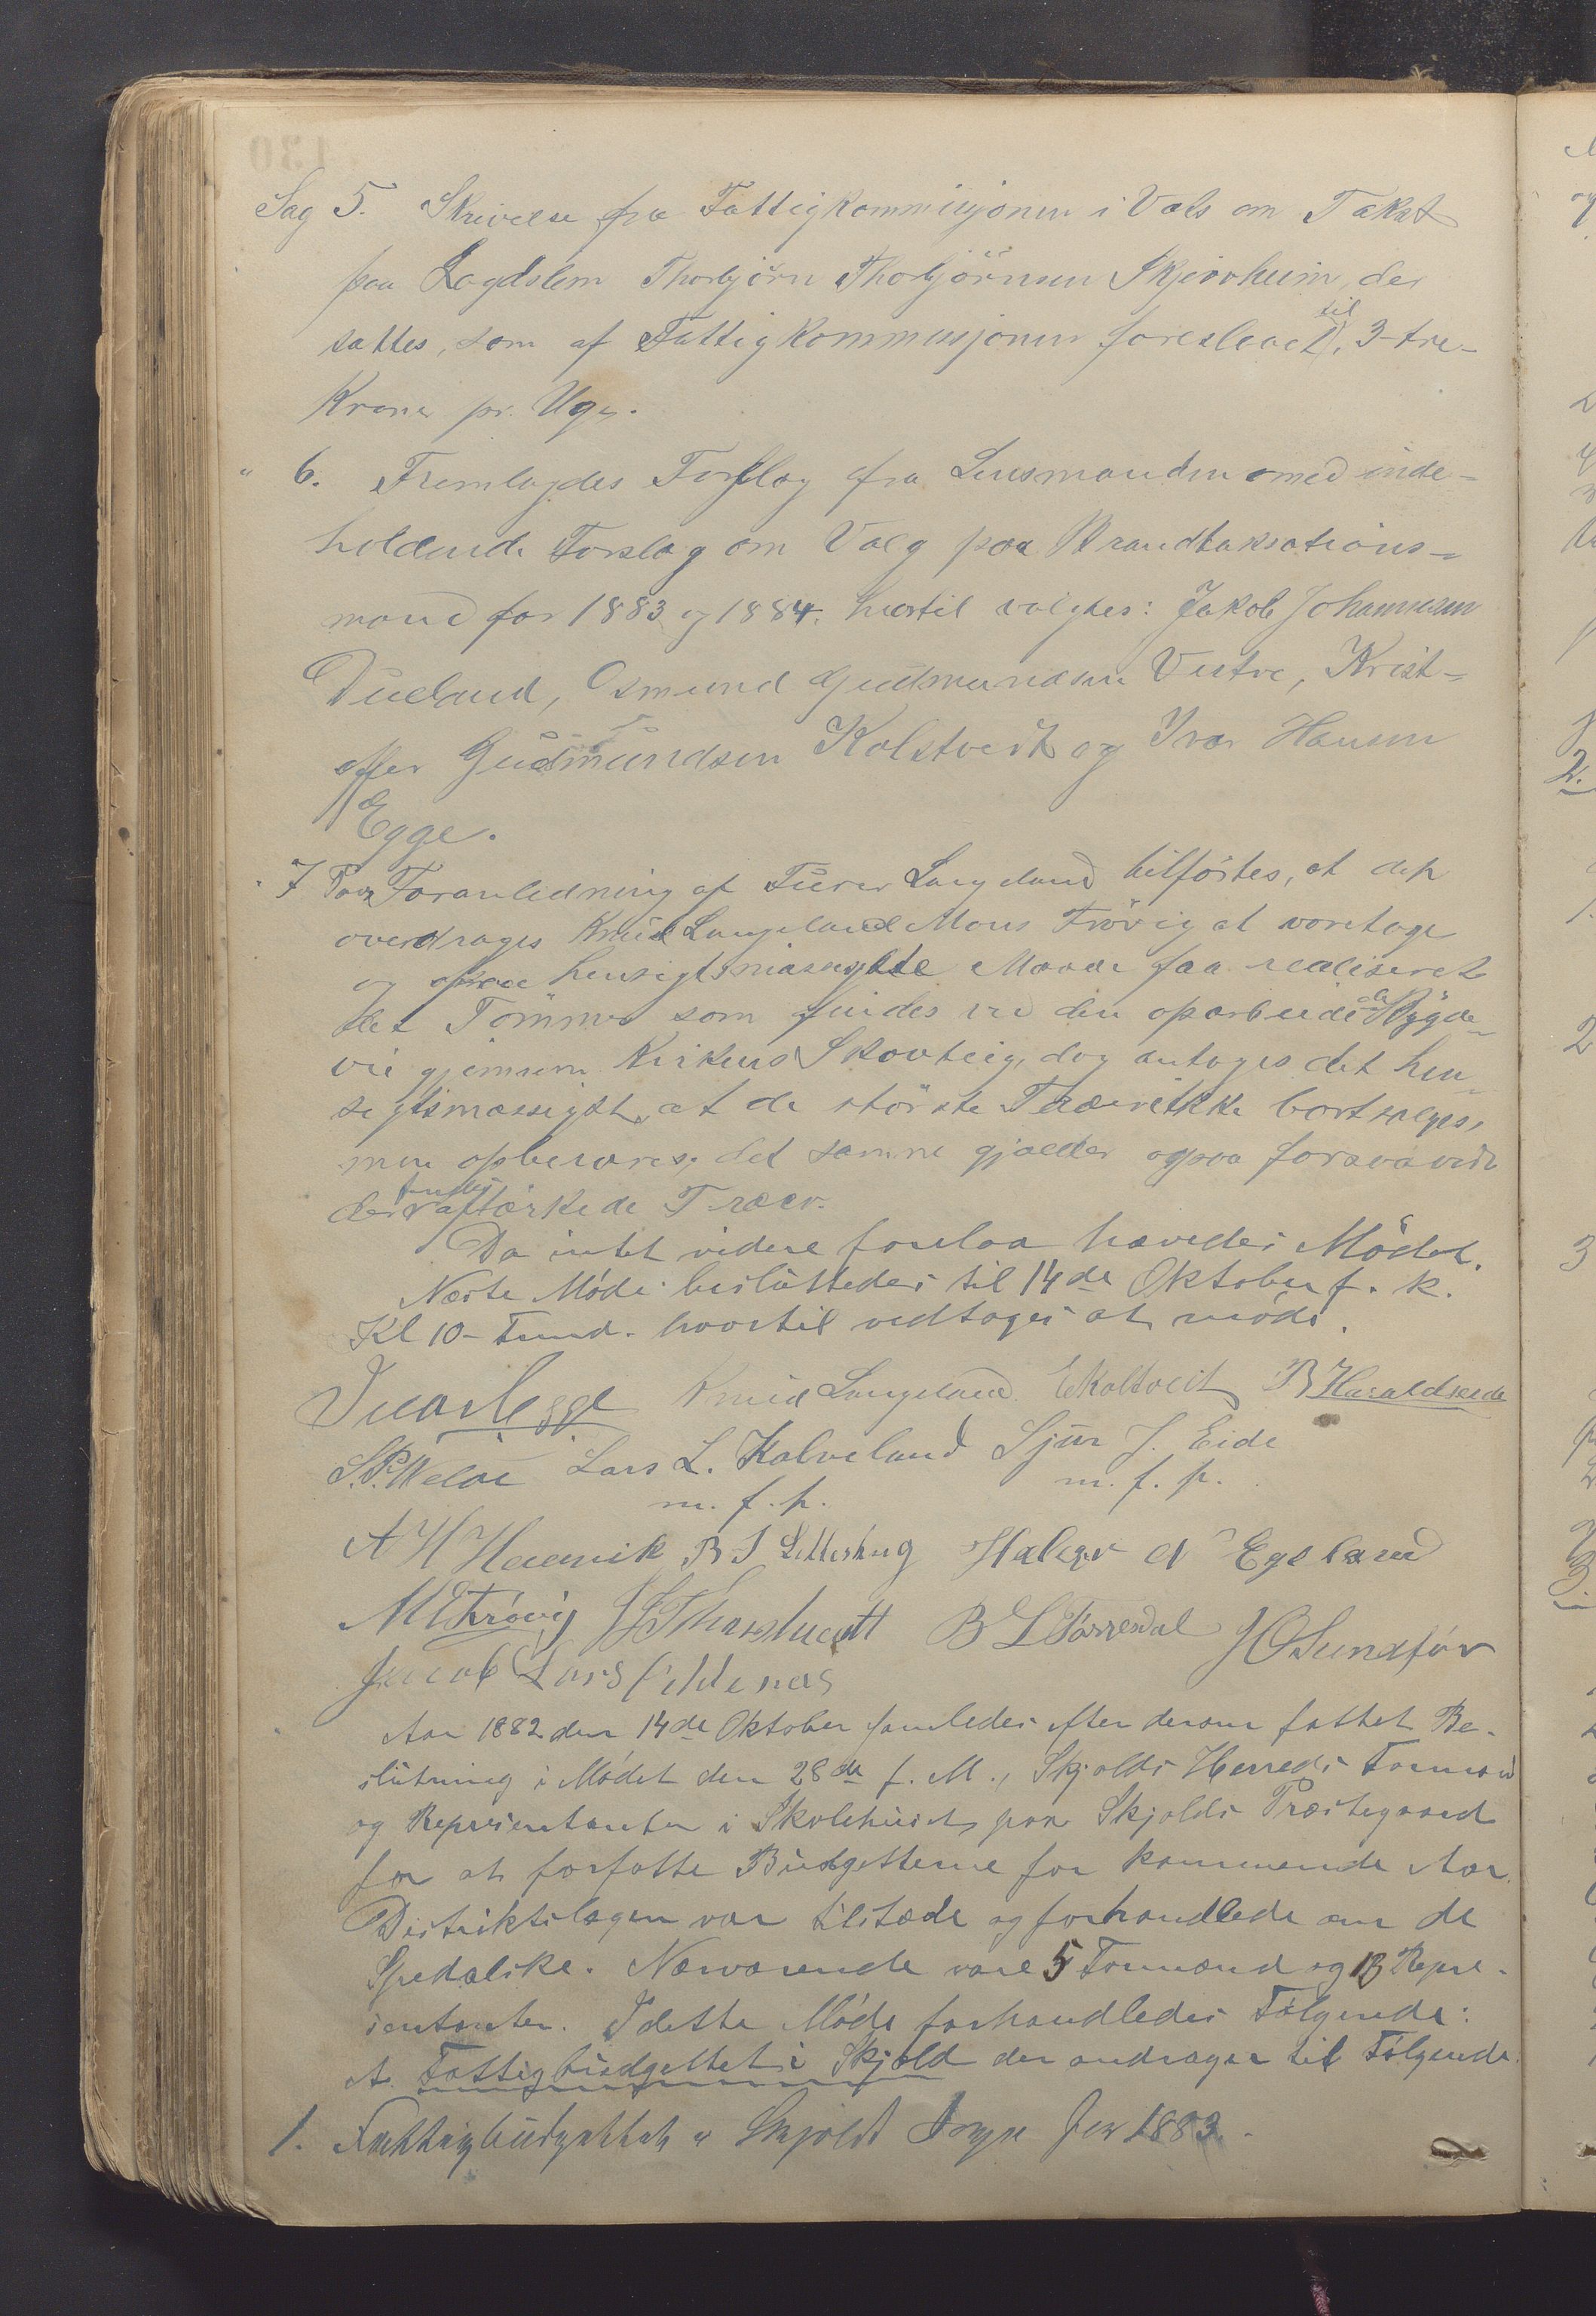 Sag 5. Skrivelse fra Fattigkommisjonen i Vats om Takst
paa Lægdslem Thorbjörn Thorbjörnsen Skjeveheim, der
sattes, som af Fattigkommisjonen foreslaaet, til 3-tre-
Kroner pr. Uge.
" 6. Fremlagdes Forslag fra Lensmanden med inde-
holdende Forslag om Valg paa Brandtaksations-
mænd for 1883 og 1884. hertil valgtes: Jakob Johannesen
Dueland, Osmund Gudmundsen Vestre, Krist-
offer Gudmundsen Kolstveit og Ivar Hansen
Egge.
" 7 Paa Foranledning af Langeland tilförtes, at det
overdrages Knud Langeland Mons Trövig at voretage
og paa hensigtsmæssigste Maade faa realiseret
det Tömmer som findes ved den oparbeidede Bygde-
vei gjennem Kirkens Skovteig, dog antages det hen-
sigtsmæssigst, at de störste Træer ikke bortsælges,
men opbevares, det samme gjælder ogsaa forsaavidt
der findes aftörkede Træer.
Da intet videre forelaa hævedes Mödet.
Næste Möde besluttedes til 14de Oktober f. k.
Kl 10- Form. hvortil vedtoges at möde.
Ivar Egge Knud Langeland EKoltveit B Haraldseide
S.P. Welde Lars L. Kalveland Sjur J. Eide
m. f. p. m. f. p.
A H B S Litleskog Halvor A Egeland
M E Trövig B L Törresdal H O Sundför
Jacob Lars
Aar 1882 den 14de Oktober samledes efter derom fattet Be-
slutning i Mödet den 28de f. M., Skjolds Herreds Formænd
og Repræsentanter i Skolehuset paa Skjolds Præstegaard
for at forfatte Budgetterne for kommende Aar.
Distriktslægen var tilstæde og forhandlede om de
Spedalske. Nærværende vare 5 Formænd og 13 Repræ-
sentanter. I dette Möde forhandledes Fölgende:
A. Fattigbudgettet i Skjold der andrager til Fölgende
1. Fattigbudgettet i Skjold Sogn for 1883.